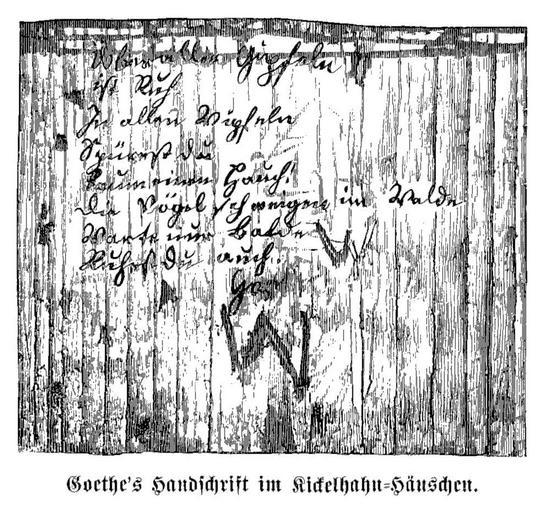 Über allen Gipfeln
ist Ruh
In allen Wipfeln
Spürest du
Kaum einen Hauch.
die Vögel schweigen im Walde
Warte nur Balde W
Ruhest du auch.
W
Goethe's Handschrift im Kickelhahn-Häuschen.